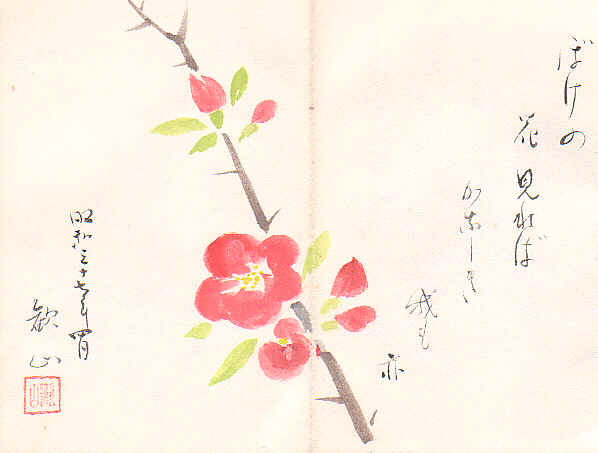 ぼけの
花 見れば
かなしき
我も
亦
昭和三十七年四月
歓山